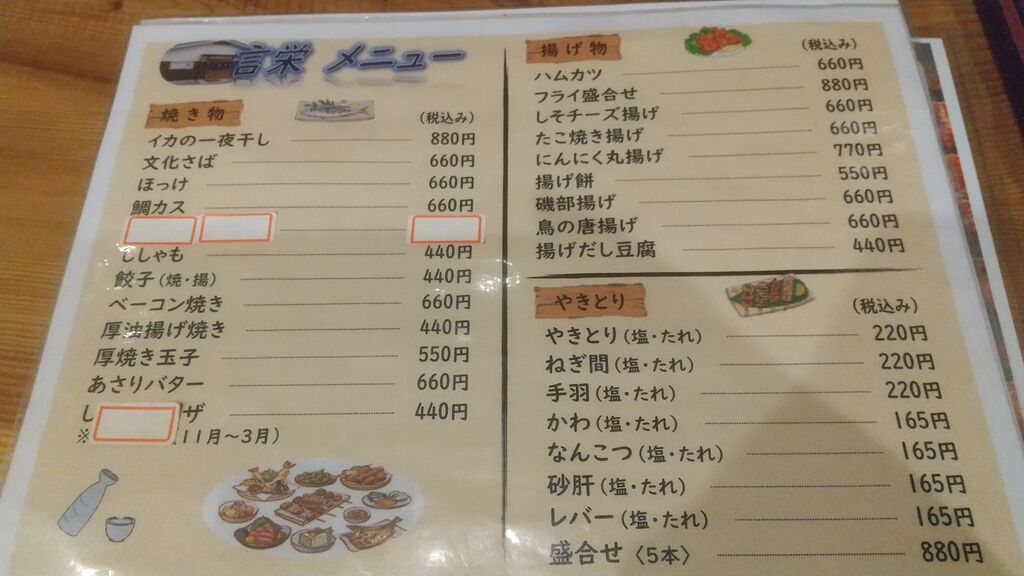 言栄 メニュー
焼き物
(税込み)
イカの一夜干し 880円
文化さば 660円
ほっけ 660円
鯛カス 660円
ししゃも 440円
餃子(焼・揚) 440円
ベーコン焼き 660円
厚油揚げ焼き 440円
厚焼き玉子 550円
あさりバター 660円
し ザ 440円
※ (11月~3月)
揚げ物
(税込み)
ハムカツ 660円
フライ盛合せ 880円
しそチーズ揚げ 660円
たこ焼き揚げ 660円
にんにく丸揚げ 770円
揚げ餅 550円
磯部揚げ 660円
鳥の唐揚げ 660円
揚げだし豆腐 440円
やきとり
(税込み)
やきとり(塩・たれ) 220円
ねぎ間(塩・たれ) 220円
手羽(塩・たれ) 220円
かわ(塩・たれ) 165円
なんこつ(塩・たれ) 165円
砂肝(塩・たれ) 165円
レバー(塩・たれ) 165円
盛合せ〈5本〉 880円